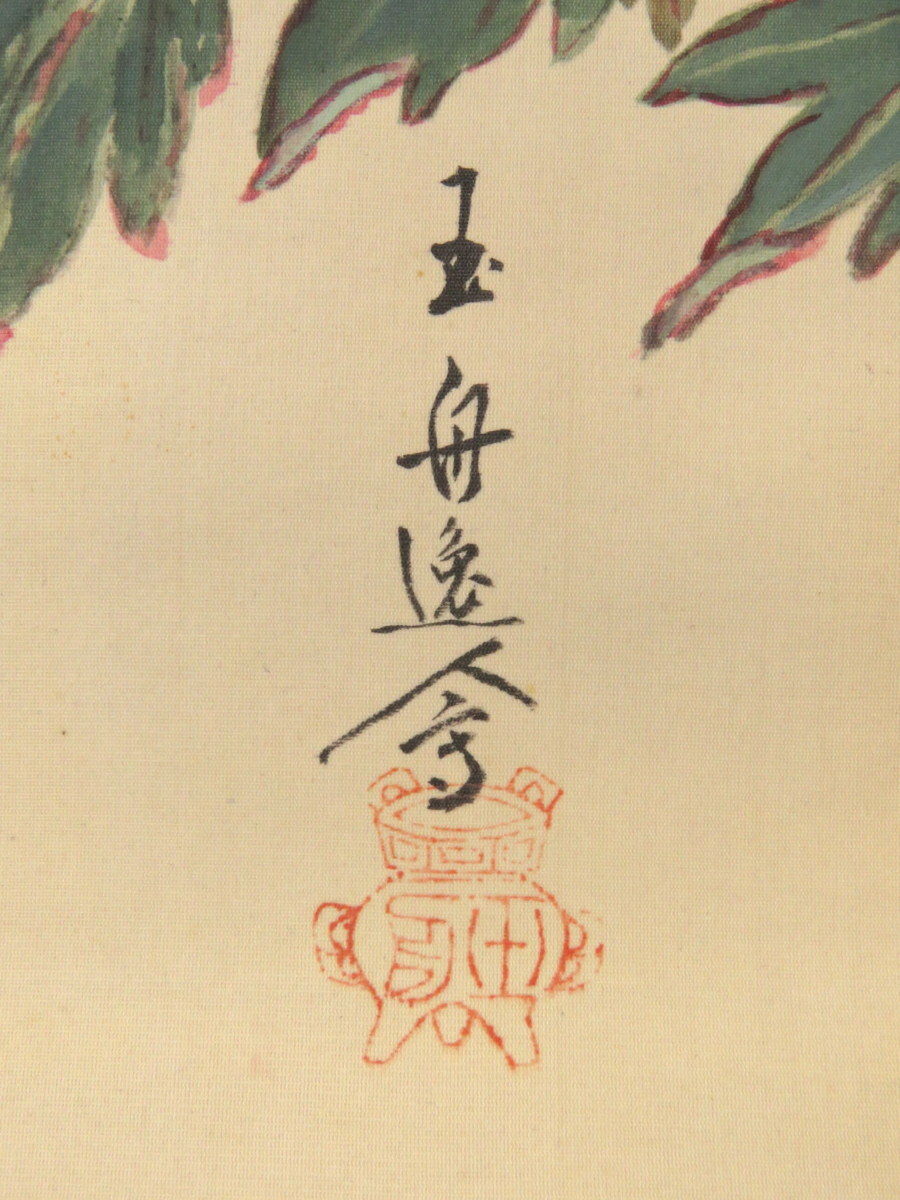 玉舟逸人寫